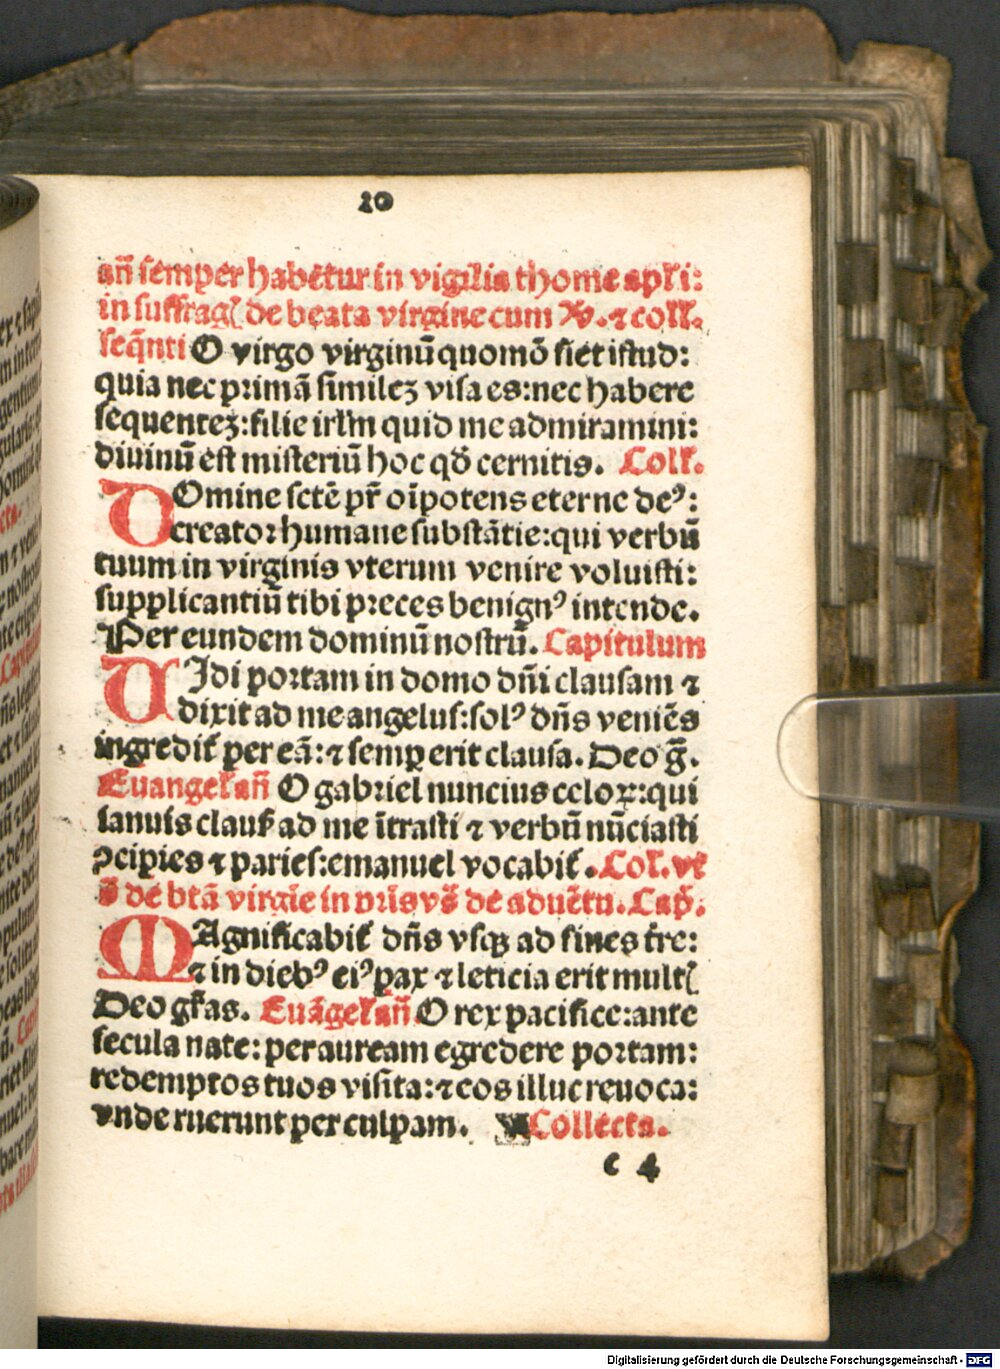 20
añ semper habētur in vigilia thome apłi:
in suffragꝭ de beata virgine cum ℣. ⁊ coll.
seq̄nti O virgo virginū quomō fiet istud:
quia nec primā similez̄ visa es: nec habere
sequentez: filie irlm̄ quid me admiramini:
diuinū est misteriū hoc qđ cernitis. Coll.
DOmine sctē pr̄ oīpotens eterne deꝰ:
creator humane substātie: qui verbū
tuum in virginis vterum venire voluisti:
supplicantiū tibi preces benignꝰ intende.
Per eundem dominū nostrū. Capitulum
UIdi portam in domo dñi clausam ⁊
dixit ad me angelus: solꝰ dñs veniēs
ingredit᷑ per eā: ⁊ semꝑ erit clausa. Deo g̃.
Euangeł añ O gabriel nuncius celoꝝ: qui
ianuis clausꝭ ad me ītrasti ⁊ verbū nūciasti
ꝯcipies ⁊ paries: emanuel vocabit᷑. Col. vt
s̄ de btā virgīe in prīs vs̄ de aduētu. Cap̄.
MAgnificabit᷑ dñs vsqꝫ ad fines tr̄e:
⁊ in diebꝰ eiꝰ pax ⁊ leticia erit multꝭ
Deo gr̄as. Euāgeł añ O rex pacifice: ante
secula nate: per auream egredere portam:
redemptos tuos visita: ⁊ eos illuc reuoca:
vnde ruerunt per culpam. Collecta.
c 4
Digitalisierung gefördert durch die Deutsche Forschungsgemeinschaft - DFG